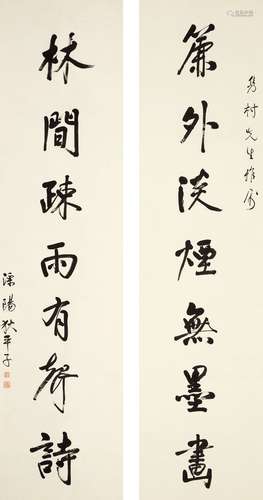 簾外淡煙無墨畫
林間疎雨有聲詩
先生雅屬
溧陽狄平子